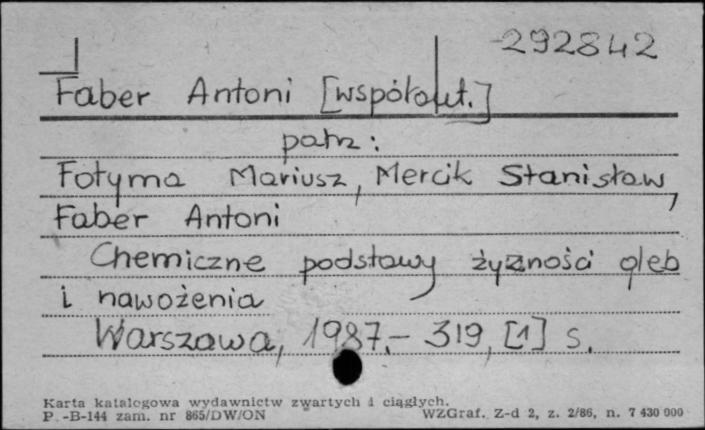 292842
Faber Antoni [współaut.]
patrz:
Fotyma Mariusz, Mercik Stanisław,
Faber Antoni
Chemiczne podstawy żyzności gleb
i nawożenia
Warszawa, 1987.- 319, [1] s.
Karta katalogowa wydawnictw zwartych i ciągłych.
P.-B-144 zam. nr 865/DW/ON WZGraf. Z-d 2, z. 2/86, n. 7 430 000